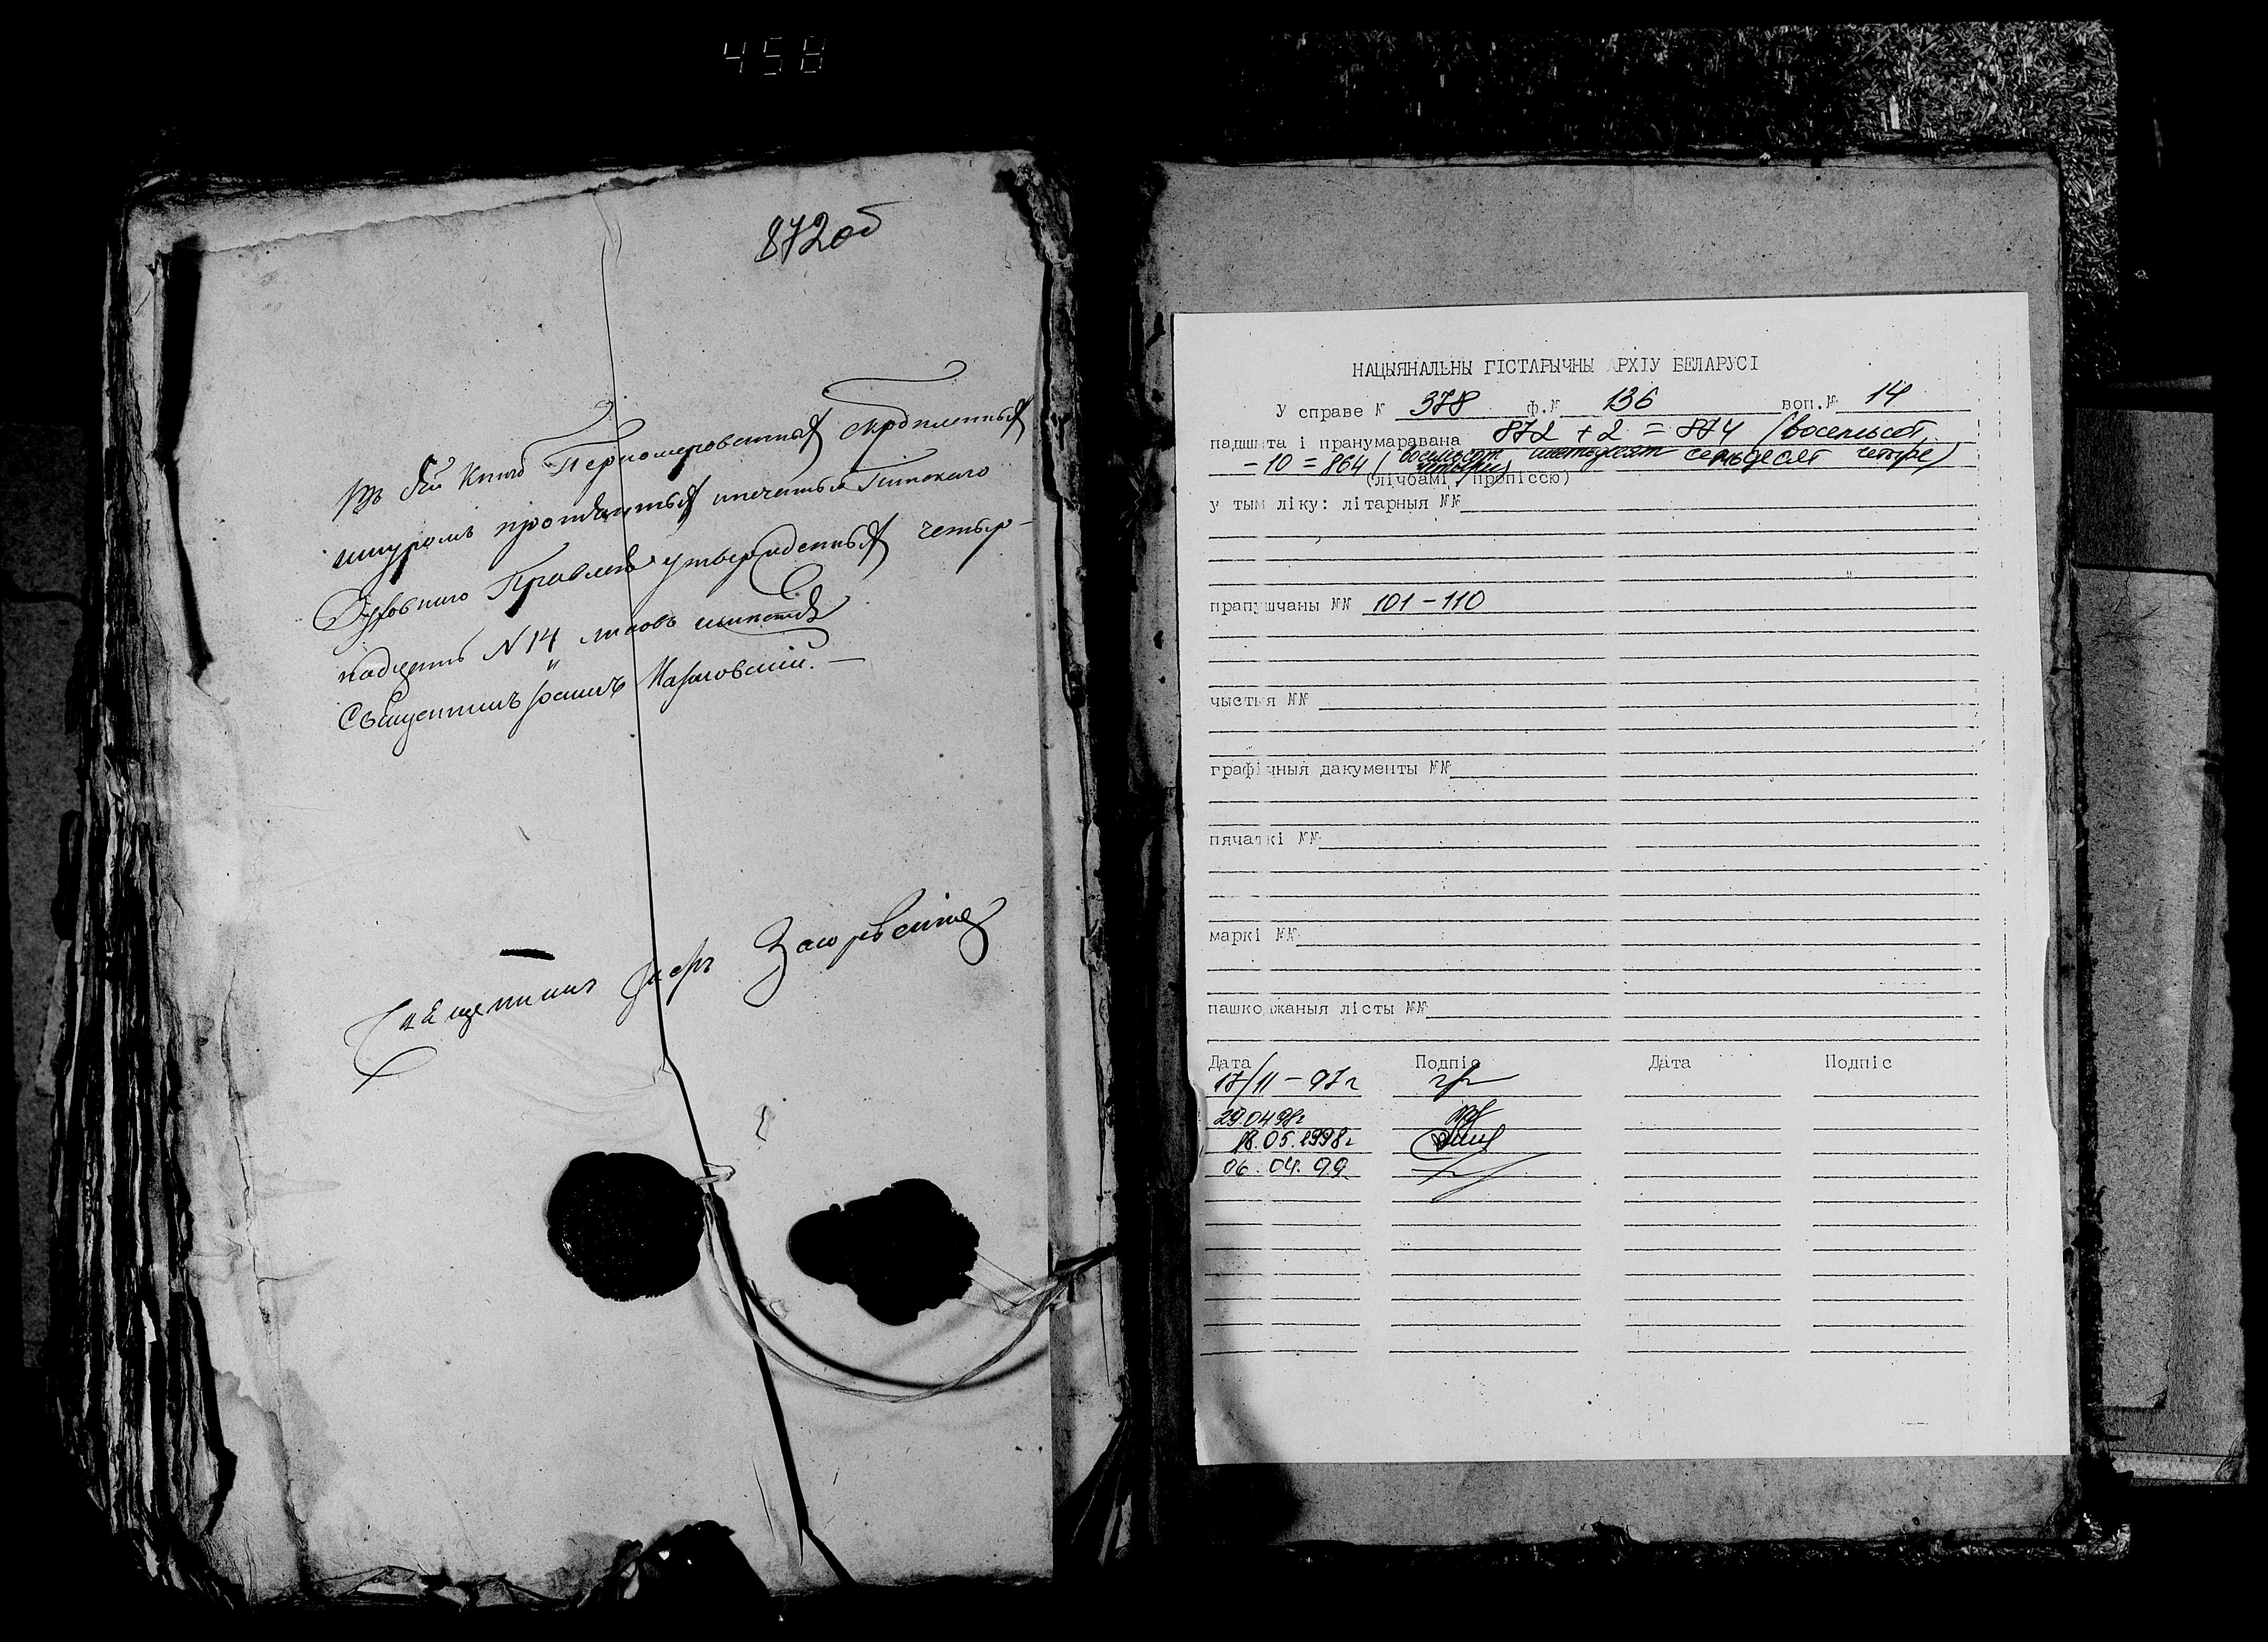 458
872об
Въ сей Книгѣ Перномерованныхъ скрѣпленныхъ
шнуромъ протянутыхъ ипечатью Пинскаго
Духовнаго Правленія утвержденныхъ четыр-
надцать N 14 листовъ
Священникъ Іоаннъ
Священникъ
НАЦЫЯНАЛЬНЫ ГІСТАРЫЧНЫ АРХІУ БЕЛАРУСІ
У справе № 378 ф.№ 136 воп.№ 14
падшыта і пранумаравана 872 + 2 = 874 (восемьсот
- 10 = 864 (восемьсот шестьдесят четыре) семьдесят четыре)
(лічбамі, пропіссю)
у тым ліку: літарныя №№
прапушчаны №№ 101-110
чыстыя №№
графічныя дакументы №№
пячаткі №№
маркі №№
пашкоджаныя лісты №№
Дата Подпіс Дата Подпіс
17/11-97г
29.04.98г
18.05.1998г
06.04.99